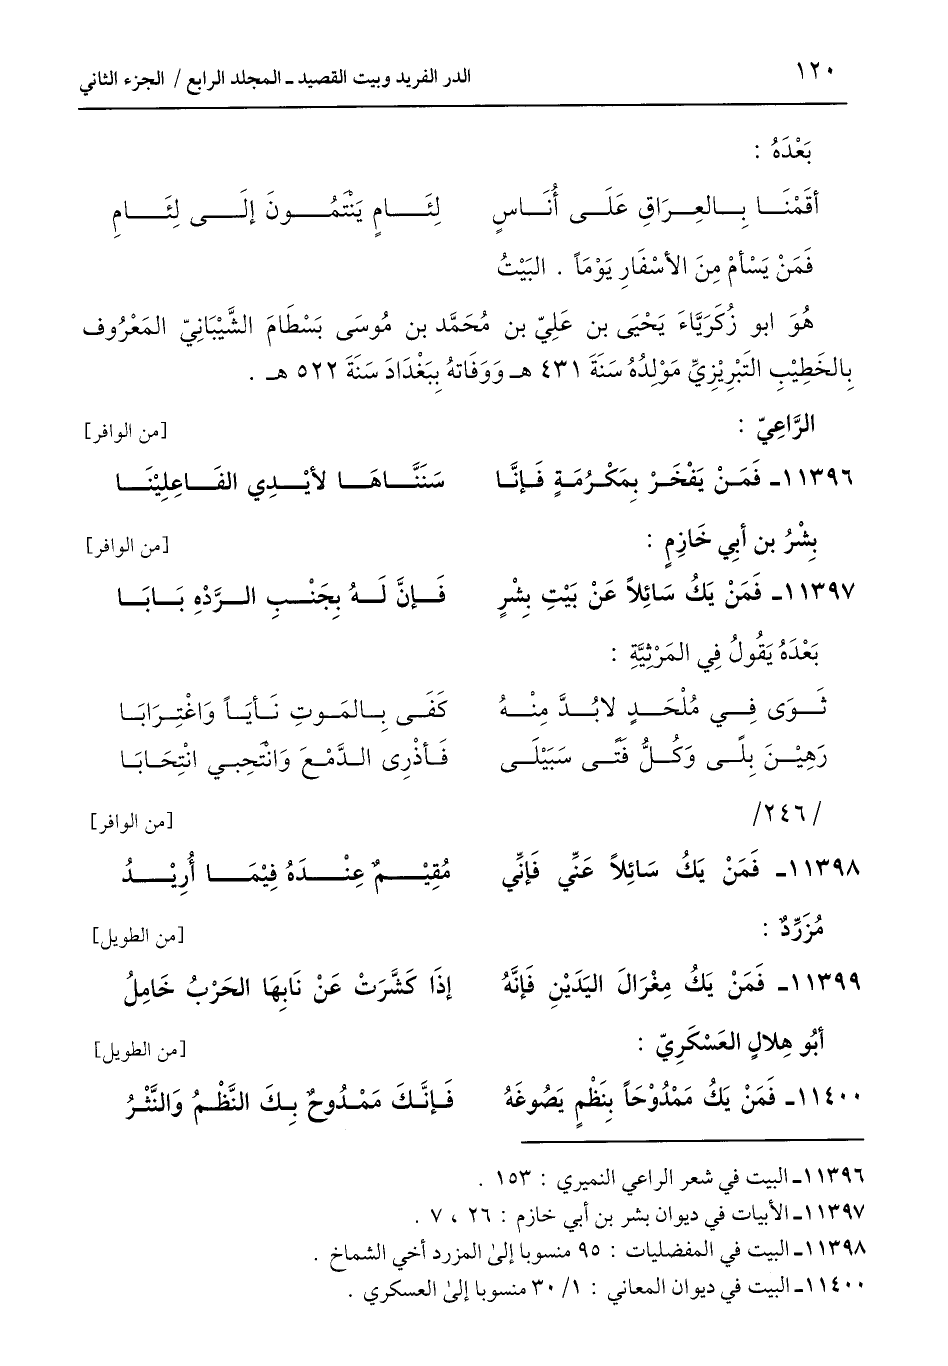 ١٢٠ الدر الفريد وبيت القصيد ـ المجلد الرابع / الجزء الثاني
بَعْدَهُ :
أقَمْنَا بِالعِرَاقِ عَلَى أُنَاسٍ لِئَامٍ يَنْتَمُونَ إلَى لِئَامِ
فَمَنْ يَسْأمْ مِنَ الأسْفَارِ يَوْمَاً . البَيْتُ
هُوَ ابو زُكَرَيَّاءَ يَحْيَى بن عَلِيّ بن مُحَمَّد بن مُوسَى بَسْطَامَ الشَّيْبَانِيّ المَعْرُوف
بِالخَطِيْبِ التَّبْرِيْزِيِّ مَوْلِدُهُ سَنَةَ ٤٣١ هـ وَوَفَاتهُ بِبَغْدَادَ سَنَةَ ٥٢٢ هـ .
الرَّاعِيّ : [من الوافر]
١١٣٩٦ـ فَمَنْ يَفْخَرْ بِمَكْرُمَةٍ فَإنَّا سَنَنَّاهَا لأيْدِي الفَاعِلِيْنَا
بِشْرُ بن أبي خَازِمٍ : [من الوافر]
١١٣٩٧ـ فَمَنْ يَكُ سَائِلاً عَنْ بَيْتِ بِشْرٍ فَإنَّ لَهُ بِجَنْبِ الرَّدْهِ بَابَا
بَعْدَهُ يَقُولُ فِي المَرْثِيَّةِ :
ثَوَى فِي مُلْحَدٍ لابُدَّ مِنْهُ كَفَى بِالمَوتِ نَأيَاً وَاغْتِرَابَا
رَهِيْنَ بِلًى وَكُلُّ فَتًى سَيَبْلَى فَأذْرِى الدَّمْعَ وَانْتَحِبي انْتِحَابَا
/٢٤٦/ [من الوافر]
١١٣٩٨ـ فَمَنْ يَكُ سَائِلاً عَنِّي فَإنِّي مُقِيْمٌ عِنْدَهُ فِيْمَا أُرِيْدُ
مُزَرِّدٌ : [من الطويل]
١١٣٩٩ـ فَمَنْ يَكُ مِعْزَالَ اليَدَيْنِ فَإنَّهُ إذَا كَشَّرَتْ عَنْ نَابِهَا الحَرْبُ خَامِلُ
أبُو هِلالٍ العَسْكَرِيّ : [من الطويل]
١١٤٠٠ـ فَمَنْ يَكُ مَمْدُوْحَاً بِنَظْمٍ يَصُوغَهُ فَإنَّكَ مَمْدُوحٌ بِكَ النَّظْمُ وَالنَّثْرُ
١١٣٩٦ـ البيت في شعر الراعي النميري : ١٥٣ .
١١٣٩٧ـ الأبيات في ديوان بشر بن أبي خازم : ٢٦ ، ٧ .
١١٣٩٨ـ البيت في المفضليات : ٩٥ منسوبا إلى المزرد أخي الشماخ .
١١٤٠٠ـ البيت في ديوان المعاني : ١/ ٣٠ منسوبا إلى العسكري .